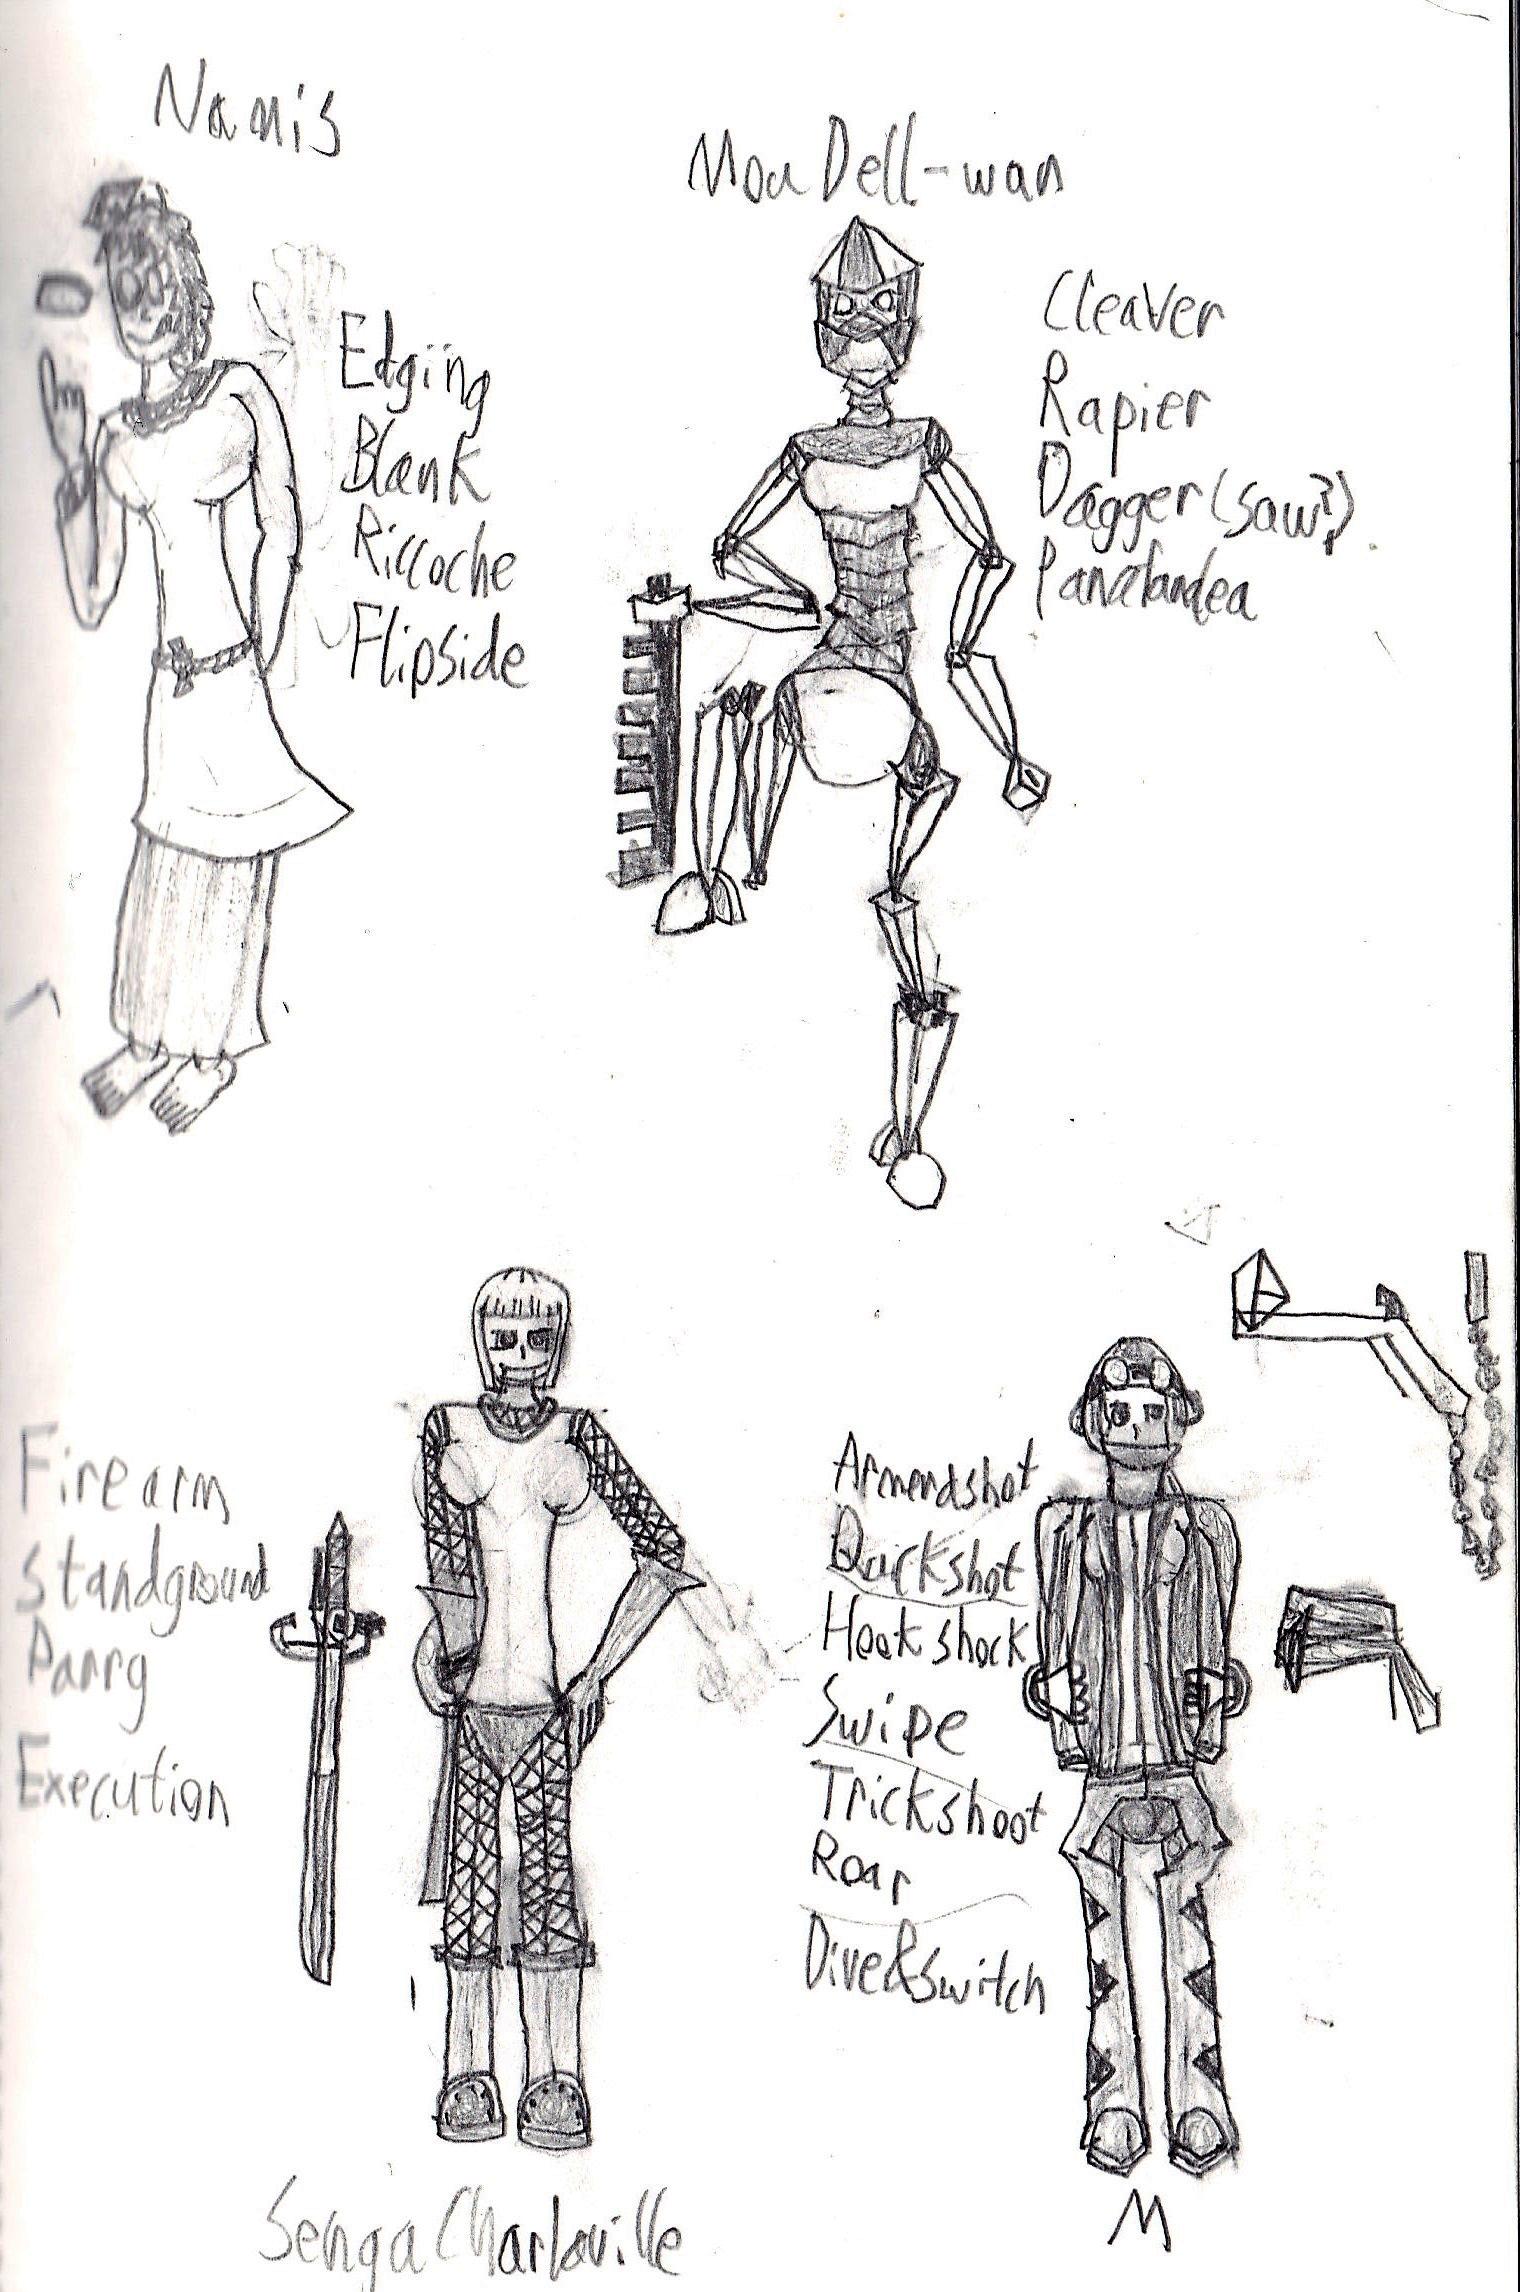 Namis
Edgiing
Blank
Riccoche
Flipside
Moa Dell-wan
Cleaver
Rapier
Dagger (saw?)
Firearm
Standground
Parry
Execution
Senga Charlaville
Quickshot
Hookshock
Swipe
Trickshoot
Roar
Dive&switch
M